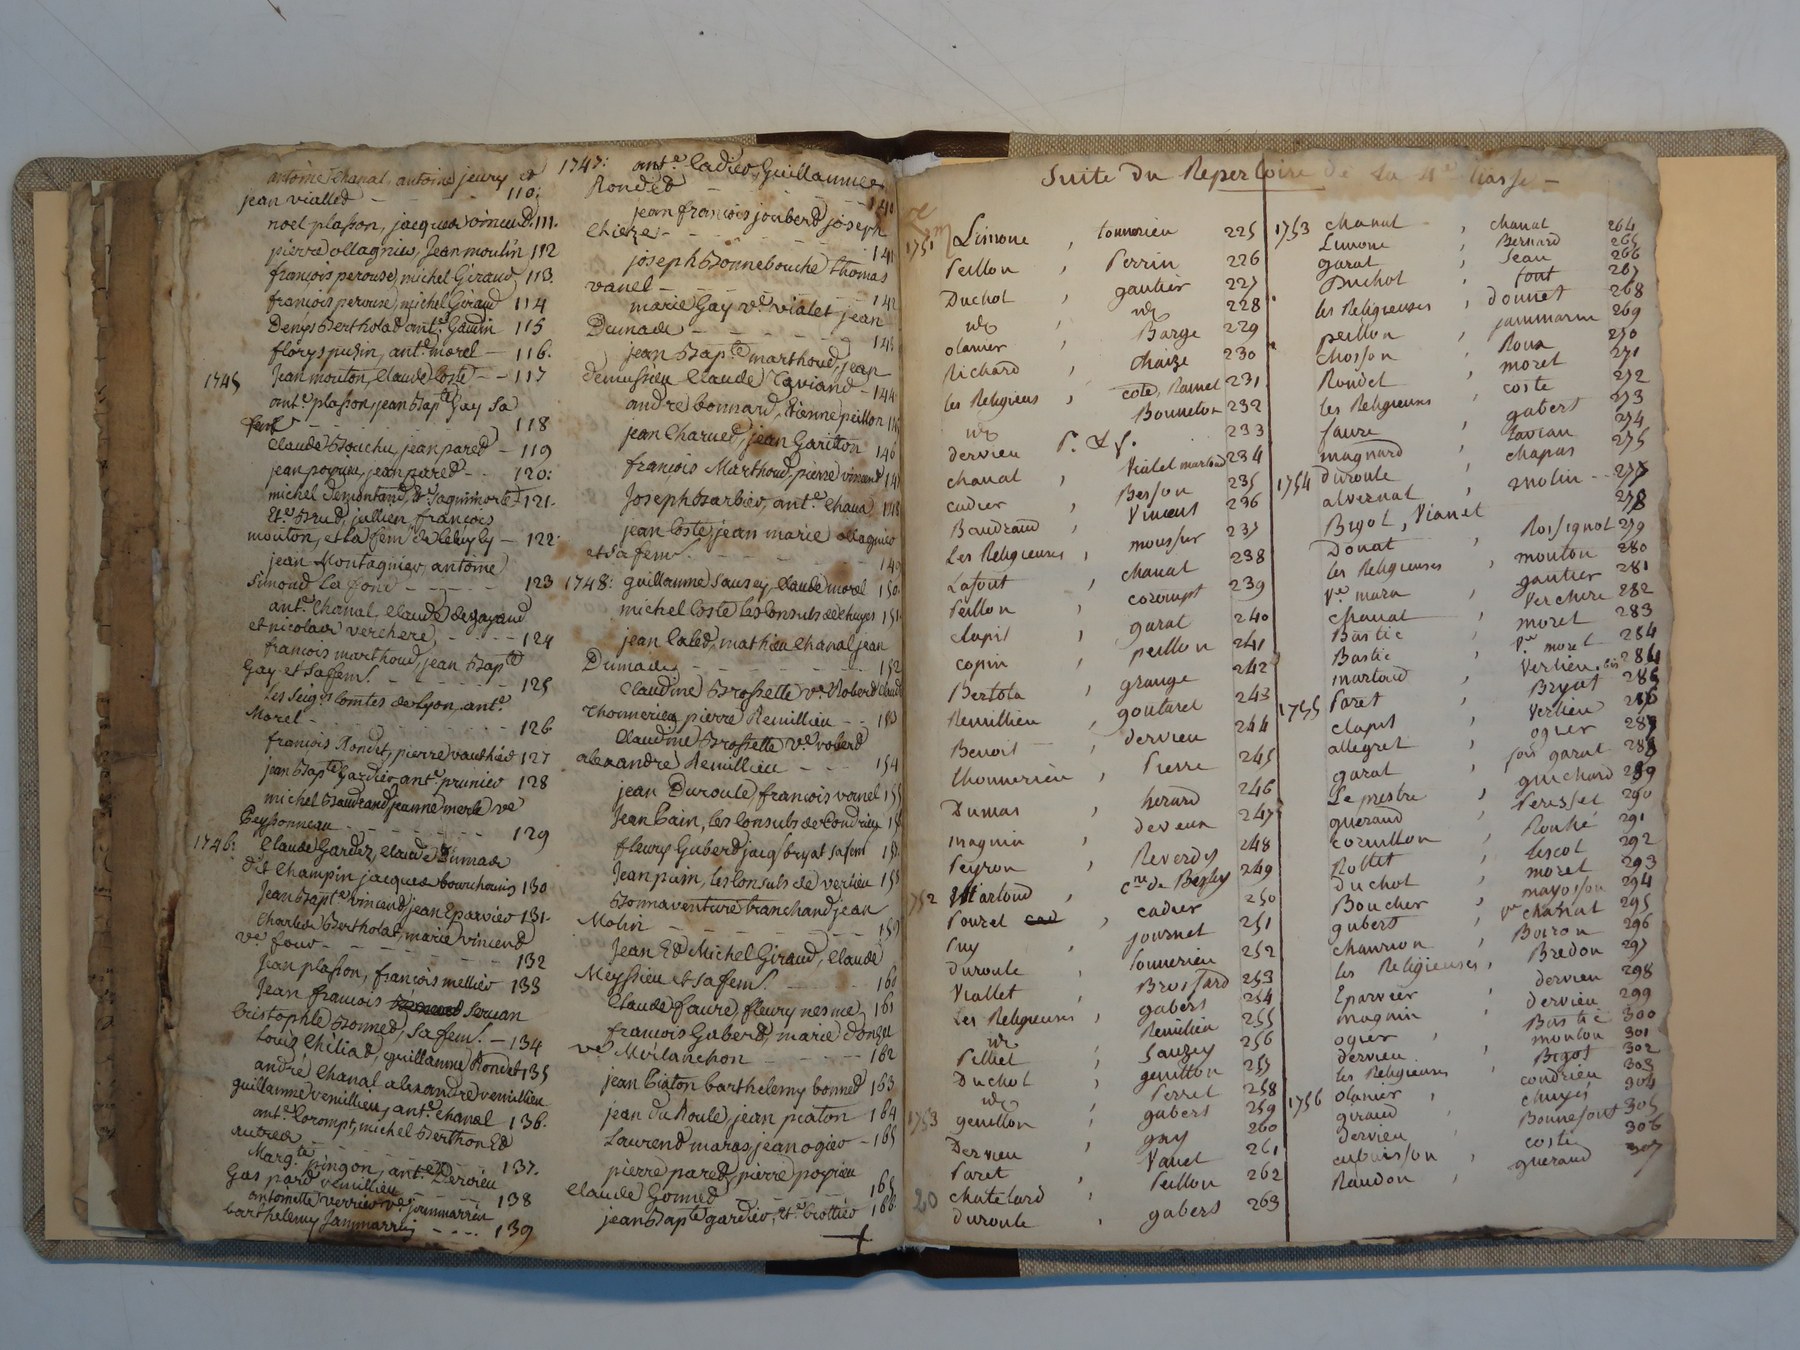 antoine Chanal, antoine jeury et
jean vialled - - - - 110:
noel plasson, jacques vincend. 111.
pierre ollagnier, Jean moulin 112
françois perouse, michel Giraud 113.
françois perouse, michel Giraud 114
Denys Bertholad ant.e Gaudin 115
florys puzin, ant.e morel - 116.
1745 Jean mouton, Claude Coste - - 117
ant.e plasson, jean Bap.te Gay sa
fem - - - - - 118
Claude Bouchu, jean pared - 119
jean poyrieu, jean pared - - 120:
michel Demontand, 121.
Et.e Brud, jullien françois
mouton, et la fem 122.
jean Montagnier, antoine
Simond la fond - - - - - 123
ant.e Chanal, Claude degayand
et nicolas verchere - - - - 124
francois marthoud, jean Bap.te
Gay et sa fem. - - - - - 125
Les seig.rs Comtes de Lyon, ant.e
Morel - - - - - - - 126
francois Rondet, pierre vauthier 127
jean Bap.te Gardier, ant.e prunier 128
michel Baudrand, jeanne merle ve
Peyssonneau - - - - - - 129
1746: Claude Gardez, Claude Dumas
d.t Champin jacques bourchanin 130
Jean Bap.te vincend, jean Eparvier 131.
Charles Bertholat, marie vincend
ve four - - - - - - 132
Jean plasson, françois mellier 133
Jean francois Servan
Cristophle Bonned, sa fem. - 134
Louis Cheliad, guillaume Rondet 135
andré Chanal alexandre remillieu
guillaume remillieu, ant.e Chanel 136.
ant.e Corompt, michel Berthon Ed
autres - - - - - - 137.
Marg.te pingon, ant.e Dervieu
Gaspard remillieu - - - - 138
antoinette verrier ve jammarrin
barthelemy Jammarrin - - - - 139
1747: ant.e Cadier, Guillaume
Ronded - - - - - 140
jean françois jouberd, joseph
Chieze - - - - - - 141
joseph Bonnebouche thomas
vanel - - - - - - 142
marie Gay ve vialet jean
Dumade - - - - - 143
jean Bap.te marthoud, jean
demussieu Claude Caviand - 144
andre bonnard, Etienne peillon 145
jean Charued, jean Garitton 146
françois Marthoud, pierre vincend 147
Joseph Barbier, ant.e Chaua 148
jean Coste, jean marie ollagnier
et sa fem. - - - - - 149
1748: guillaume Sauzey, Claude morel 150.
michel Coste les Consuls de Chuyes 151.
jean Caled, mathieu Chanal jean
Dumade - - - - - - 152
Claudine Brossette ve Roberd Claude
Thomerieu, pierre Remillieu - - 153
Claudine Brossette ve roberd
alexandre Remillieu - - - 154
jean Duroule, francois vernel 155
Jean Cain, les Consuls de Condrieu 156
fleury Guberd jacq. bryat sa fem 157
Jean puin, les Consuls de verlieu 158
Bonnaventure branchand, jean
Molin - - - - - - 159
Jean Ed Michel Giraud, Claude
Meyssieu et sa fem. - - - - 160
Claude faure, fleury nesme, 161
francois Guberd, marie donzu
ve Merlanchon - - - - - 162
jean Ciaton, barthelemy bonned 163
jean du Roule, jean piaton 164
Laurend maras, jean ogier - 165
pierre pared, pierre poyrieu
Claude Gonned - - - - - 165
jean Bap.te gardier, Et.e Brottier 166
Suite du Repertoire de la 4e liasse -
1751 Limone , tonnerieu 225
Peillon , Perrin 226
Duchol , gautier 227
id , id 228
olanier , Barge 229
Richard , Chaize 230
les Religieus , cote, Ramel 231
id Bonneton 232
dervieu P. & f. 233
chanal , Vialet martoud 234
cadier , Besson 235
Baudrand , Vincens 236
Les Religieuses , moussier 237
Lafout , chanal 238
Peillon , corompt 239
clapil , garat 240
copin , peillon 241
Bertola , grange 242
Remillieu , goutarel 243
Benoit , dervieu 244
Thonnerieu , Pierre 245
Dumas , herard 246
magnin , deveux 247
Peyron , Reverdy 248
1752 Martoud , cne de Begley 249
Pouzel , cadier 250
Puy , journet 251
duroule , tonnerieu 252
Viallet , Brossard 253
Les Religieuses , gabert 254
id Remilieu 255
Pelliet , Sauzey 256
Duchol , genitton 257
id Perret 258
1753 genitton , gabert 259
Dervieu guy 260
Paret , Vanel 261
20 chatelard , Peillon 262
duroule , gabert 263
1753 chanal , chanal 264
Limone , Bernard 265
garat , Jean 266
Duchol , font 267
les Religieuses , donnet 268
peillon , jammarin 269
chosson , Roux 270
Rondet , moret 271
les Religieuses , coste 272
faure , gabert 273
magnard , Javeau 274
1754 duroule , chapas 275
alvernat , molin - - 277
Bigot, Vianet 278
Donat , Rossignol 279
les Religieuses , mouton 280
Ve mara , gautier 281
chanal , Verchere 282
Bastie , moret 283
Bastie , Ve moret 284
martoud , Verlieu bis 284
1755 Paret , Bryat 285
clapit , Verlieu 286
allegret , ogier 287
garat , garat 288
Le prestre , guichard 289
gueraud , Perisset 290
cornillon , Rouhé 291
Rollet , Liscot 292
duchol , moret 293
Boucher , mayosson 294
gubert , Ve chanal 295
chanrion , Boiron 296
les Religieuses , Bredon 297
Eparvier , dervieu 298
magnin , dervieu 299
ogier , Bastie 300
dervieu , mouton 301
les Religieuses , Bigot 302
1756 olanier , condrieu 303
giraud , chuyés 304
dervieu , Bonnefont 305
cubuisson , coste 306
Raudon , gueraud 307